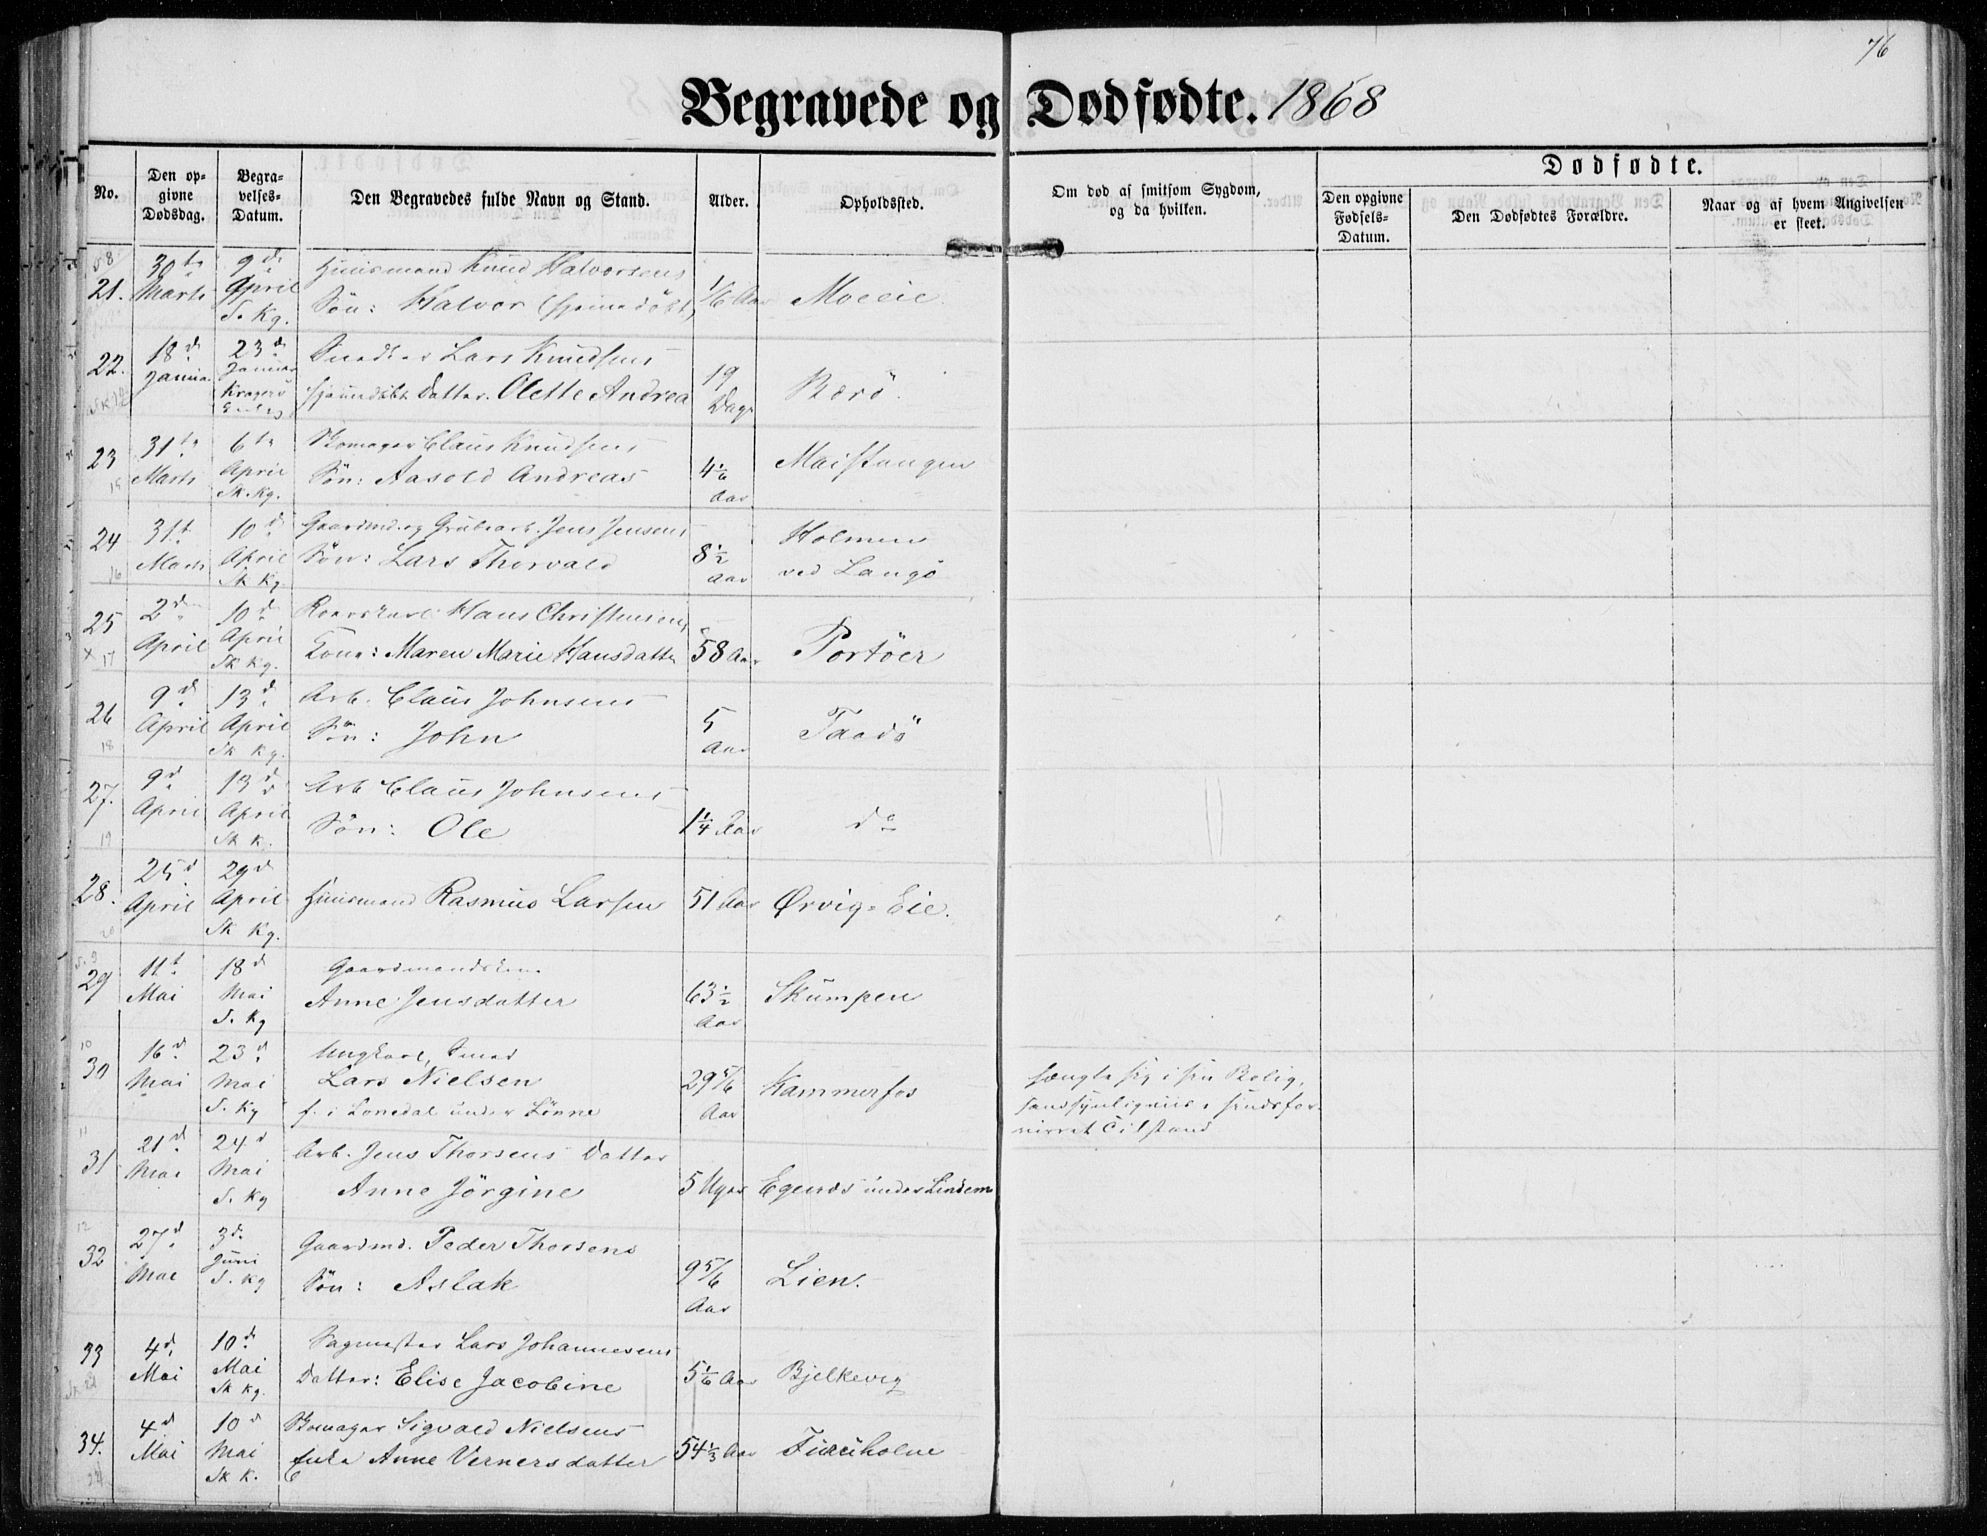 76
Begravede og Dødfødte. 1868
No.
Den opgivne Dødsdag.
Begravelses-Datum.
Den Begravedes fulde Navn og Stand.
Alder.
Opholdssted.
Om død af smitsom Sygdom, og da hvilken.
Dødfødte.
Den opgivne Fødsels-Datum.
Den Dødfødtes Forældre.
Naar og af hvem Angivelsen er skeet.
21. 30te Marts 9de April S. Kg. Huusmand Knud Halvorsens
Søn: Halvor (hjemmedøbt) 1/6 Aar Moeeie.
22. 18d Januar 23d Januar Kragerø Snedker Lars Knudsens
hjemmedøbt Datter. Olette Andrea 19 Dage Bærö.
23 31te Marts 6te April Sk. Kg. Skomager Claus Knudsens
Søn: Aasold Andreas 4 1/6 Aar Maistangen
24 31t Marts 10d April Sk Kg. Gaardmd. og Grubearb. Jens Jensens
Søn: Lars Thorvald 8 1/2 Aar Holmen
ved Langö
25 2d April 10d April Sk Kg. Hans Christensens
Kone: Maren Marie Hansdatter 58 Aar Portöer
26 9d April 13d April Sk Kg. Arb. Claus Johnsens
Søn: John 5 Aar Taadö
27. 9d April 13d April Sk K. Arb Claus Johnsens
Søn: Ole 1 1/4 Aar do
28. 25d April 29d April Sk Kg. Huusmand Rasmus Larsen 51 Aar Ørvig-Eie.
29 11t Mai 18d Mai S. Kg Gaardmandskone
Anne Jensdatter 63 1/2 Aar Skumpen
30 16d Mai 23d Mai S. Kg Ungkarl, Smed
Lars Nielsen 29 5/6 Aar Kammerfos
f. i Lonedal under Lønne
hængte sig i sin Bolig,
sandsynligviis i sindsfor-
virret Tilstand
31 21d Mai 24d Mai S. Kg Arb. Jens Thorsens Datter
Anne Jörgine 5 Uger Egenæs under Lindem
32 27d Mai 3d. Juni S. Kg Gaardmd. Peder Thorsens
Søn: Aslak 9 5/6 Aar Lien.
33 4d. Mai 10d Mai Sk Kg. Sagmester Lars Johannesens
Datter: Elise Jacobine 5 1/6 Aar Bjelkevig
34. 4d Mai 10d Mai Sk K. Skomager Sigvald Nielsens
Enke Anne Vernersdatter 54 1/3 Aar Furuholm